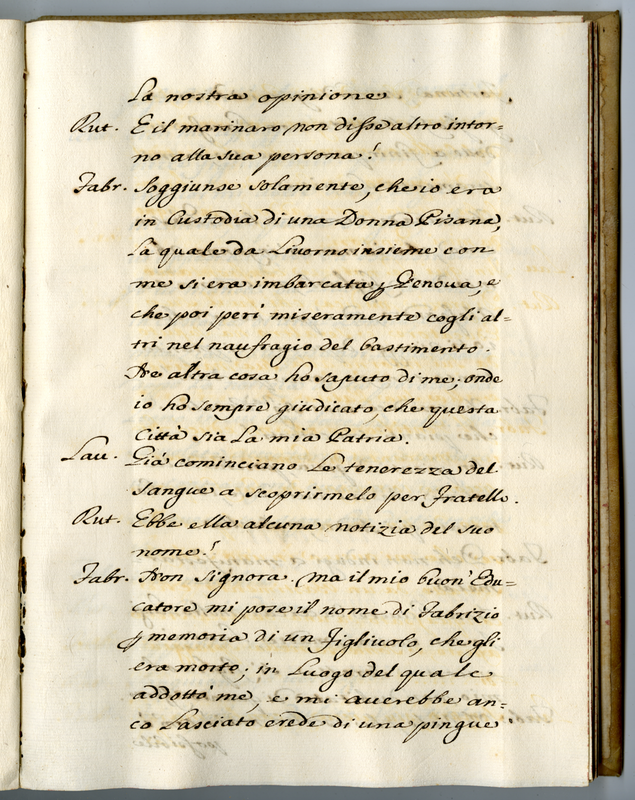 La nostra opinione.
Rut. E il marinaro non disse altro intor=
no alla sua persona?
Fabr. Soggiunse solamente, che io era
in Custodia di una Donna Pisana,
La quale da Livorno insieme con
me si era imbarcata ꝑ Genova, e
che poi perì miseramente cogli al=
tri nel naufragio del bastimento.
Ne altra cosa ho saputo di me; onde
io ho sempre giudicato, che questa
Città sia La mia Patria.
Lau. Già cominciano Le tenerezza del
sangue a scoprirmelo per Fratello.
Rut. Ebbe ella alcuna notizia del suo
nome?
Fabr. Non Signora, ma il mio buon' Edu=
catore mi pose il nome di Fabrizio
ꝑ memoria di un Figliuolo, che gli
era morto; in Luogo del quale
addottò me, e mi auerebbe an=
co Lasciato erede di una pingue